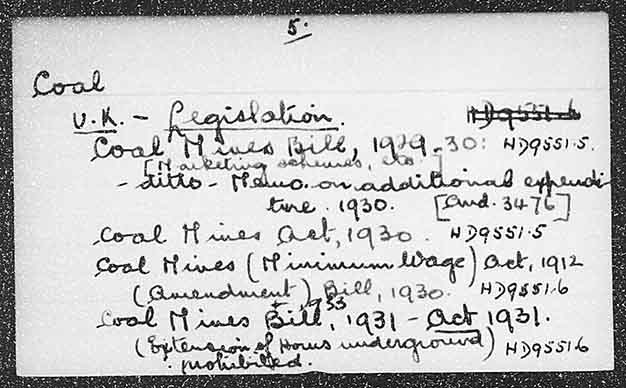 5.
Coal
U.K. - Legislation. HD9551.6
Coal Mines Bill, 1929-30: HD9551.5.
[Marketing schemes, etc.]
- ditto - Memo. on additional expendi
ture. 1930. [Cmd. 3476]
Coal Mines Act, 1930. HD9551.5
Coal Mines (Minimum Wage) Act, 1912
(Amendment) Bill, 1930. HD9551.6
+ 1933
Coal Mines Bill, 1931 - Act 1931.
(Extension of Hours underground) HD9551.6
prohibited.